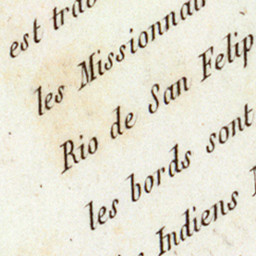 est
les Missionnair
Rio de San Felip
les bords sont
Indiens